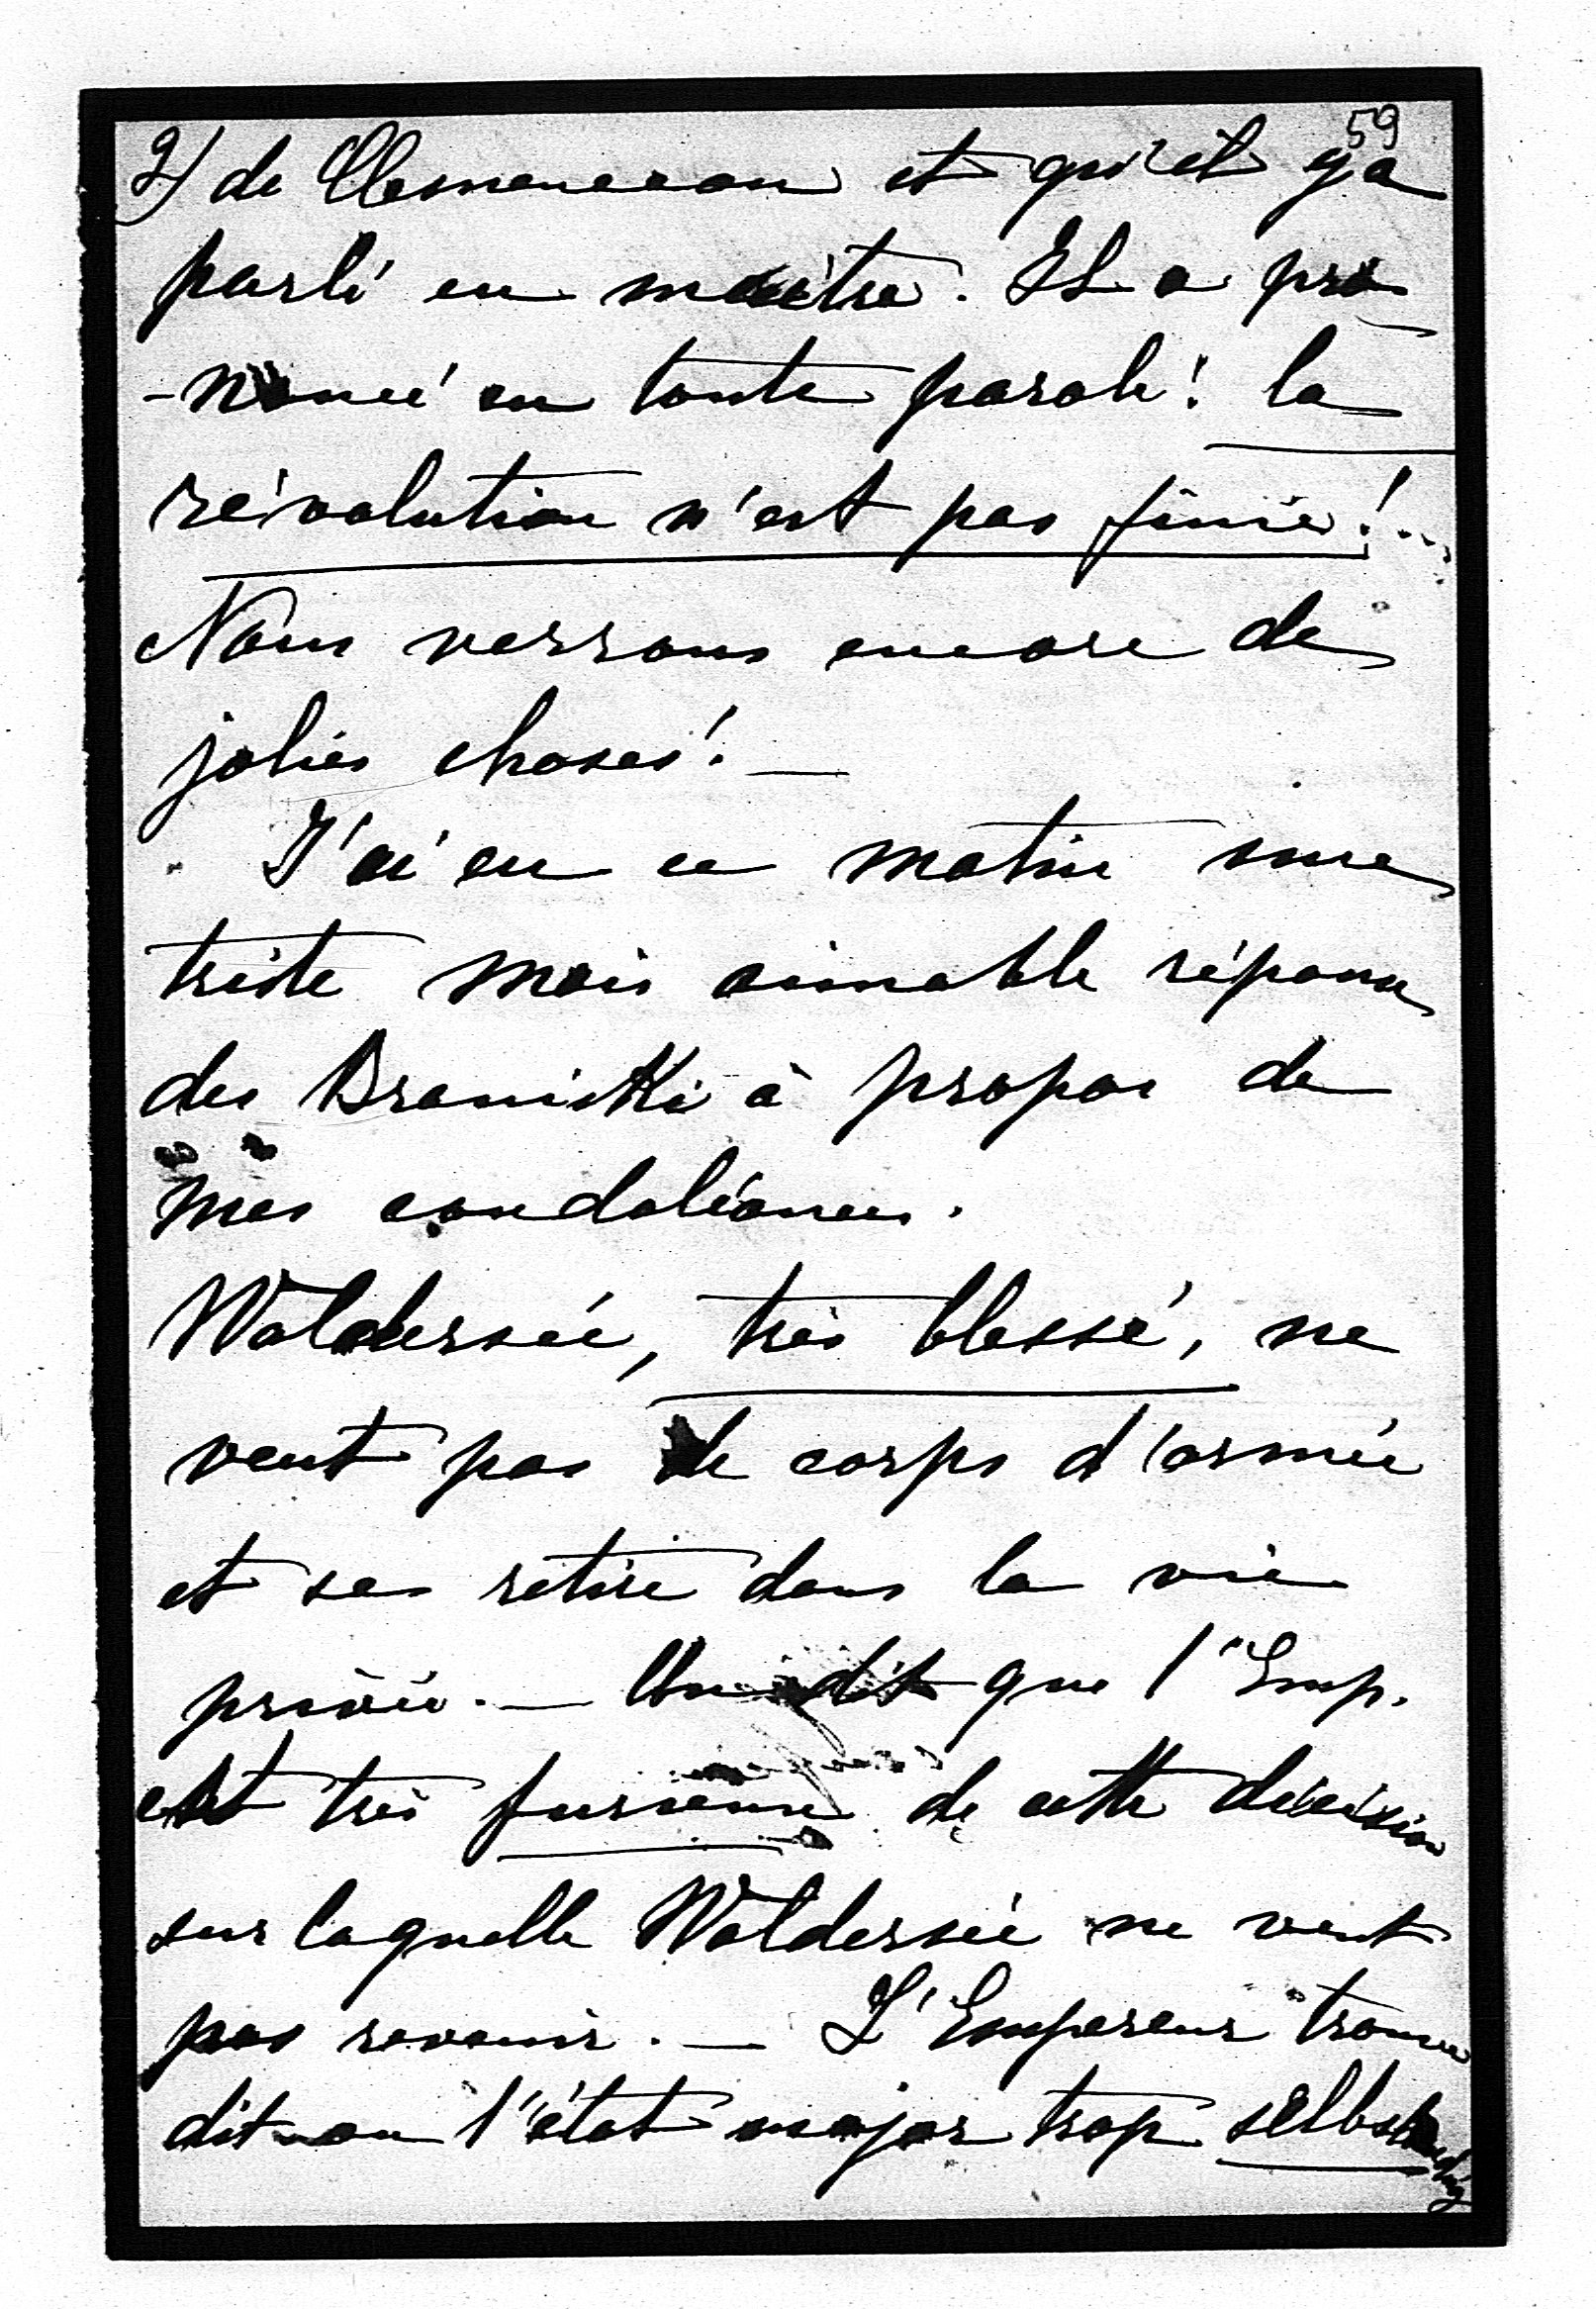 59
2) de Clemenceau et qu'il y a
parlé en maître. Il a pro
-noncé en toute parole: la
révolution n'est pas finie!...
Nous verrons encore de
jolies choses! —
J'ai eu ce matin une
triste mais aimable réponse
des Branicki à propos de
mes condoléances.
Waldersée, très blessé, ne
veut pas de corps d'armée
et se retire dans la vie
privée. — On dit que l'Emp.
est très furieux de cette décision
sur laquelle Waldersée ne veut
pas revenir. — L'Empereur trouve
dit-on l'état major trop selbstandig